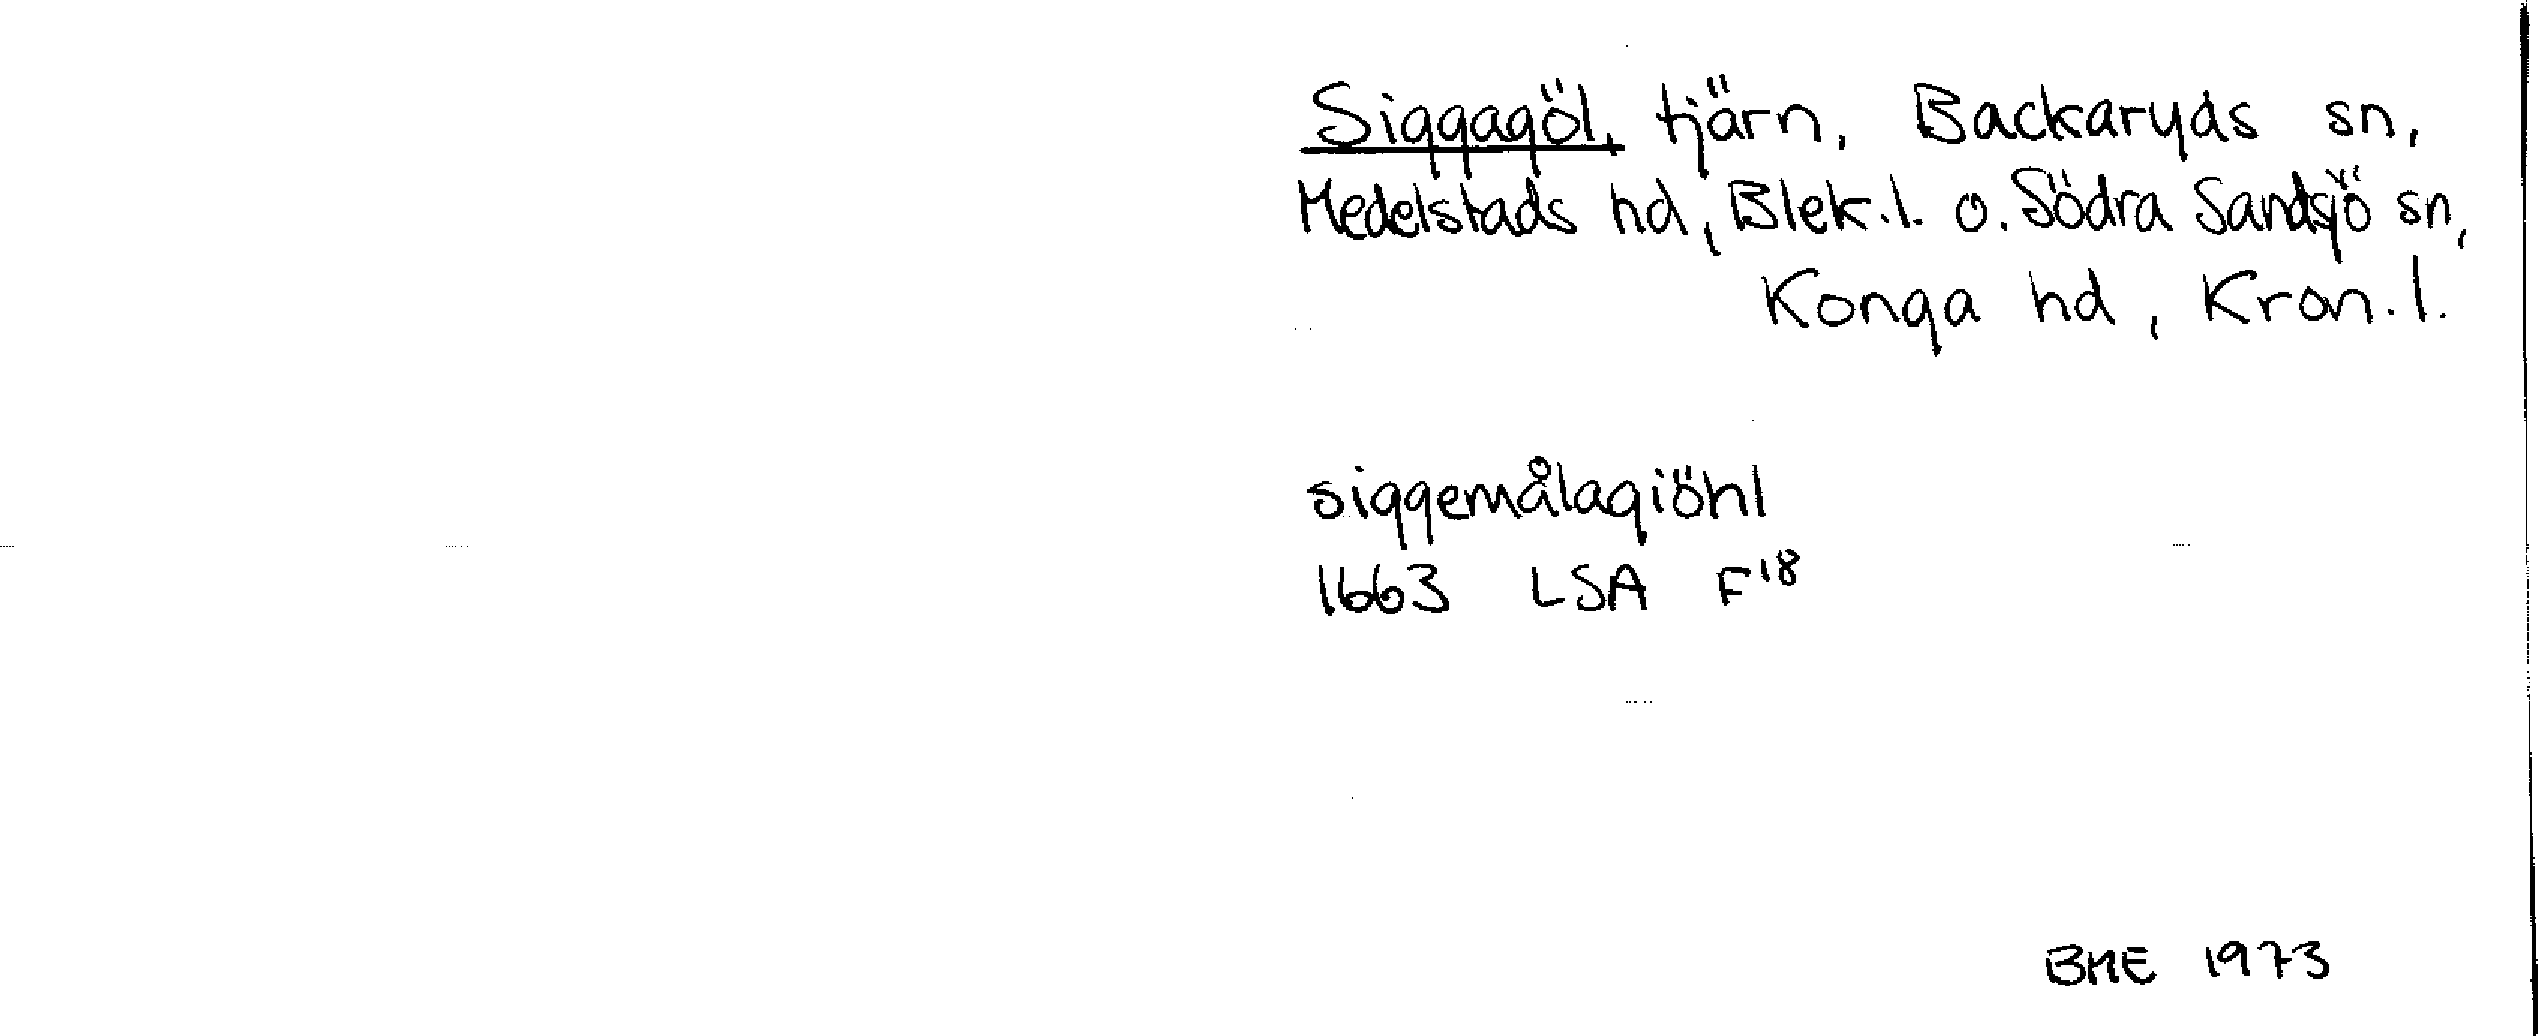 Siggagöl, tjärn, Backaryds sn,
Medelstads hd, Blek.l. o. Södra Sandsjö sn,
Konga hd, Kron.l.
siggemålagiöhl
1663 LSA F18
BME 1973